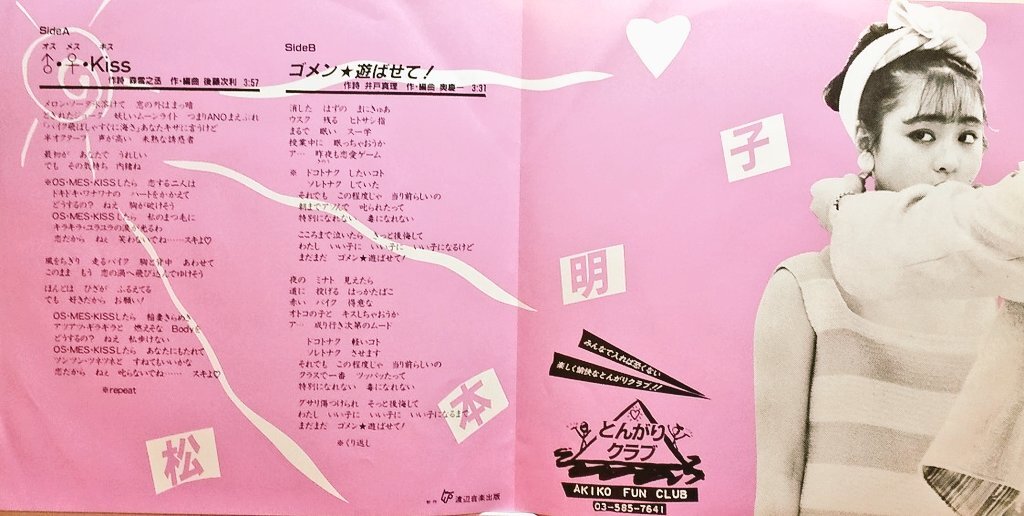 SideA
オス メス キス
♂・♀・Kiss
作詩 森雪之丞 作・編曲 後藤次利 3:57
メロン・ソーダ氷溶けて 窓の外はまっ暗
妖しいムーンライト つまりANOまえぶれ
「バイク飛ばしゃすぐに海さ」あなたキザに言うけど
半オクターブ 声が高い 未熟な誘惑者
最初が あなたで うれしい
でも その気持ち 内緒ね
※OS・MES・KISSしたら 恋する二人は
ドキドキ・ワナワナの ハートをかかえて
どうするの? ねぇ 胸が砕けそう
OS・MES・KISSしたら 私のまつ毛に
キラキラ・ユラユラの 涙が光るわ
恋だから ねぇ 笑わないでね……スキよ♡
風をちぎり 走るバイク 胸と背中 あわせて
このまま もう 恋の渦へ飛び込んでゆけそう
ほんとは ひざが ふるえてる
でも 好きだから お願い!
OS・MES・KISSしたら 稲妻きらめき
アツアツ・ギラギラと 燃えそな Bodyを
どうするの? ねえ 私歩けない
OS・MES・KISSしたら あなたにもたれて
ツンツン・ツネツネと すねてもいいかな
恋だから ねぇ 叱らないでね…… スキよ♡
※repeat
SideB
ゴメン★遊ばせて!
作詩 井戸真理 作・編曲 奥慶一 3:31
消した はずの まにきゅあ
ウスク 残る ヒトサシ指
まるで 眠い スー学
授業中に 眠っちゃおうか
ア… 昨夜も恋愛ゲーム
※ トコトナク したいコト
ソレトナク していた
それでも この程度じゃ 当り前らしいの
朝までアソんで 叱られたって
特別になれない 毒になれない
こころまで泣いたら きっと後悔して
わたし いい子に いい子に いい子になるけど
まだまだ ゴメン★遊ばせて!
夜の ミナト 見えたら
道に 投げる はっかたばこ
赤い バイク 得意な
オトコの子と キスしちゃおうか
ア… 成り行き次第のムード
トコトナク 軽いコト
ソレトナク させます
それでも この程度じゃ 当り前らしいの
クラスで一番 ツッパッたって
特別になれない 毒になれない
グサリ傷つけられ そっと後悔して
わたし いい子に いい子に いい子になるまで
まだまだ ゴメン★遊ばせて!
※くり返し
松
本
明
子
みんなで入れば恐くない
楽しく愉快なとんがりクラブ!!
とんがり
クラブ
AKIKO FUN CLUB
03-585-7641
渡辺音楽出版